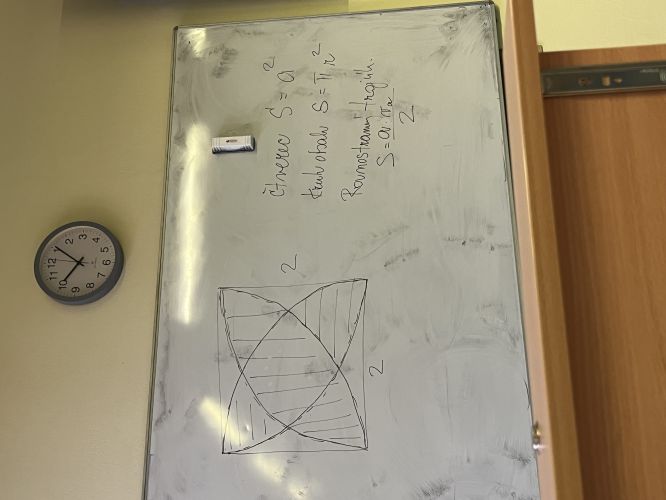 Čtverec S = a²
kruh obsah S = π r²
Rovnostranný trojúh.
S = a·vₐ / 2
2
2
11 12 1 2 3 4 5 6 7 8 9 10